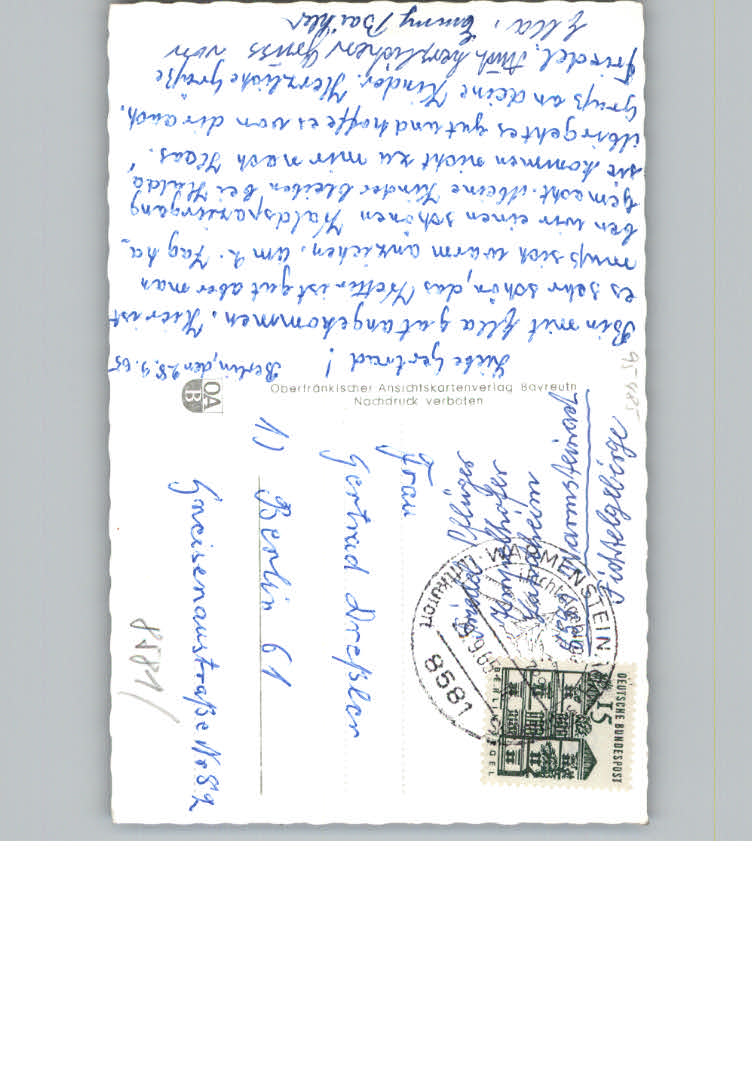 Berlin, den 28.9.65
Liebe Gertrud!
Bin mit Ella gut angekommen. Hier ist
es sehr schön, das Wetter ist gut aber man
muß sich warm anziehen. Am 2. Tag ha-
ben wir einen schönen Waldspaziergang
gemacht. Meine Kinder bleiben bei Halda,
sie kommen nicht zu mir nach Haas.
Mir geht es gut und hoffe es von dir auch.
Gruß an deine Kinder. Herzliche Grüße
Friedel. Auch herzlichen Gruss von
Ella,
Oberfränkischer Ansichtskartenverlag Bayreuth
Nachdruck verboten
OA
B
95485
Friedel
Warmensteinach
Fichtelgebirge
Frau
Gertrud Dreßler
1) Berlin 61
Gneisenaustraße Nr 82
8581/
8581 WARMENSTEINACH
Luftkurort
Fichtelgebirge
9.65
DEUTSCHE BUNDESPOST
15
BERLIN TEGEL